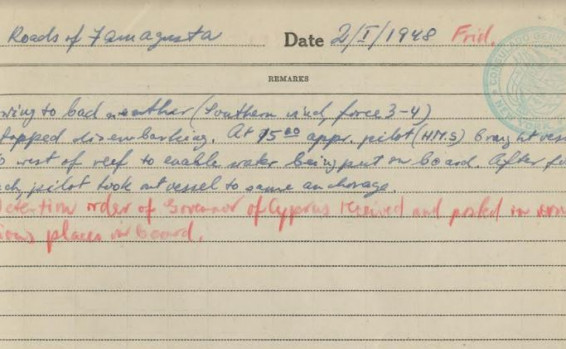 Roads of Famagusta Date 2/I/1948 Frid.
REMARKS
owing to bad weather (Southern wind, force 3-4)
stopped disembarking. At 15 00 appr. pilot (H.M.S) brought
west of reef to enable water being put on board. After
pilot took out vessel to same anchorage.
Detention order of Governor of Cyprus received and posted in
places on board.